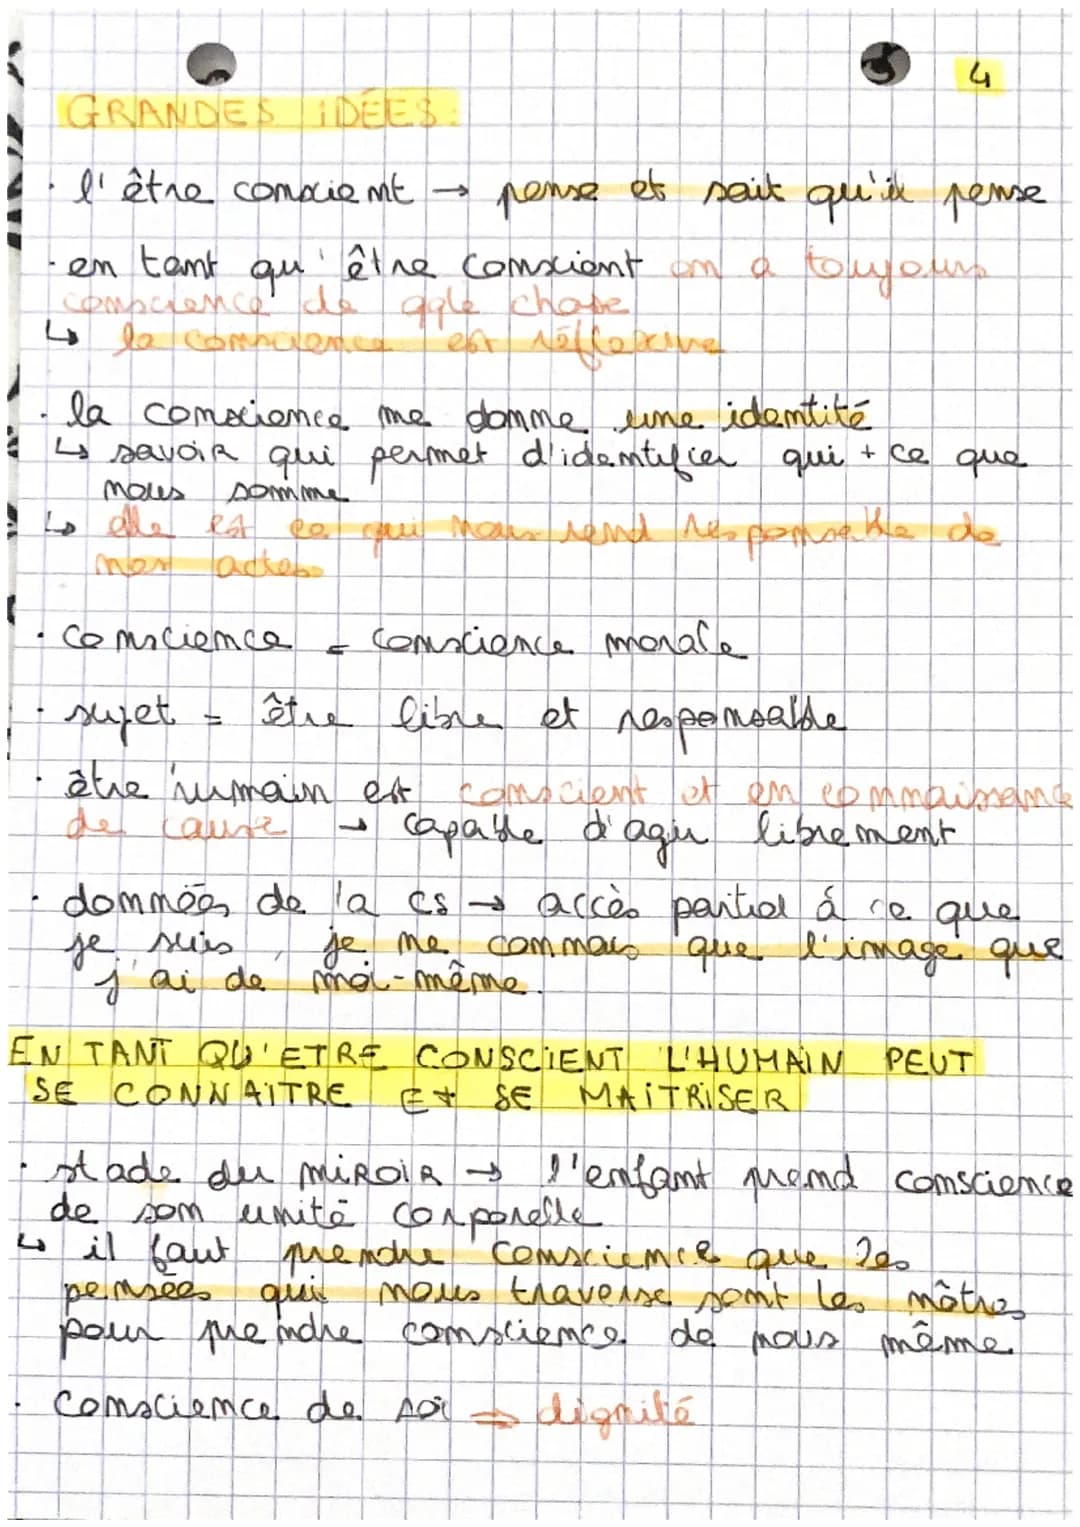 4
GRANDES IDÉES:
· l'être conscient → pense et sait qu'il pense
· en tant qu'être conscient on a toujours
conscience de qqle chose
↳ la conscience est réflexive
· la conscience me donne une identité
↳ savoir qui permet d'identifier qui + ce que
nous somme
↳ elle est ce qui nous rend responsable de
nos actes
· conscience = conscience morale
· sujet = être libre et responsable
· être humain est conscient et en connaissance
de cause → capable d'agir librement
· données de la cs → accès partiel á ce que
je suis, je me connais que l'image que
j'ai de moi-même.
EN TANT QU'ETRE CONSCIENT L'HUMAIN PEUT
SE CONNAITRE Et SE MAITRISER
· stade du miroir → l'enfant prend conscience
de son unité corporelle
↳ il faut prendre conscience que les
pensées qui nous traverse sont les nôtres
pour prendre conscience de nous même
· conscience de soi → dignité